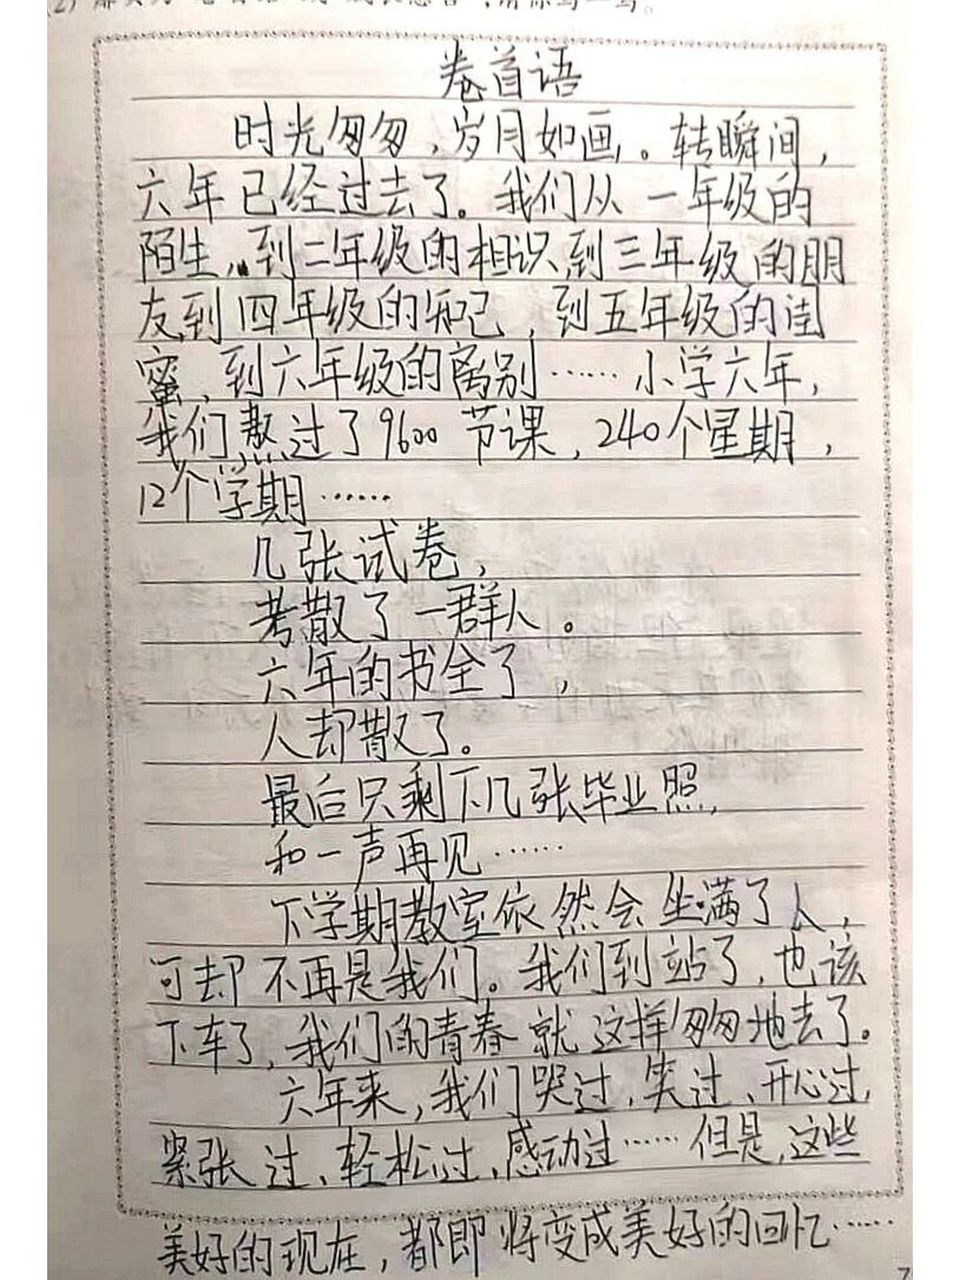 卷首语
时光匆匆，岁月如画。转瞬间，
六年已经过去了。我们从一年级的
陌生，到二年级的相识到三年级的朋
友到四年级的知己，到五年级的闺
蜜，到六年级的离别……小学六年，
我们熬过了9600节课，240个星期，
12个学期……
几张试卷，
考散了一群人。
六年的书全了，
人却散了。
最后只剩下几张毕业照，
和一声再见……
下学期教室依然会坐满了人，
可却不再是我们。我们到站了，也该
下车了，我们的青春就这样匆匆地去了。
六年来，我们哭过，笑过，开心过，
紧张过、轻松过，感动过……但是，这些
美好的现在，都即将变成美好的回忆……